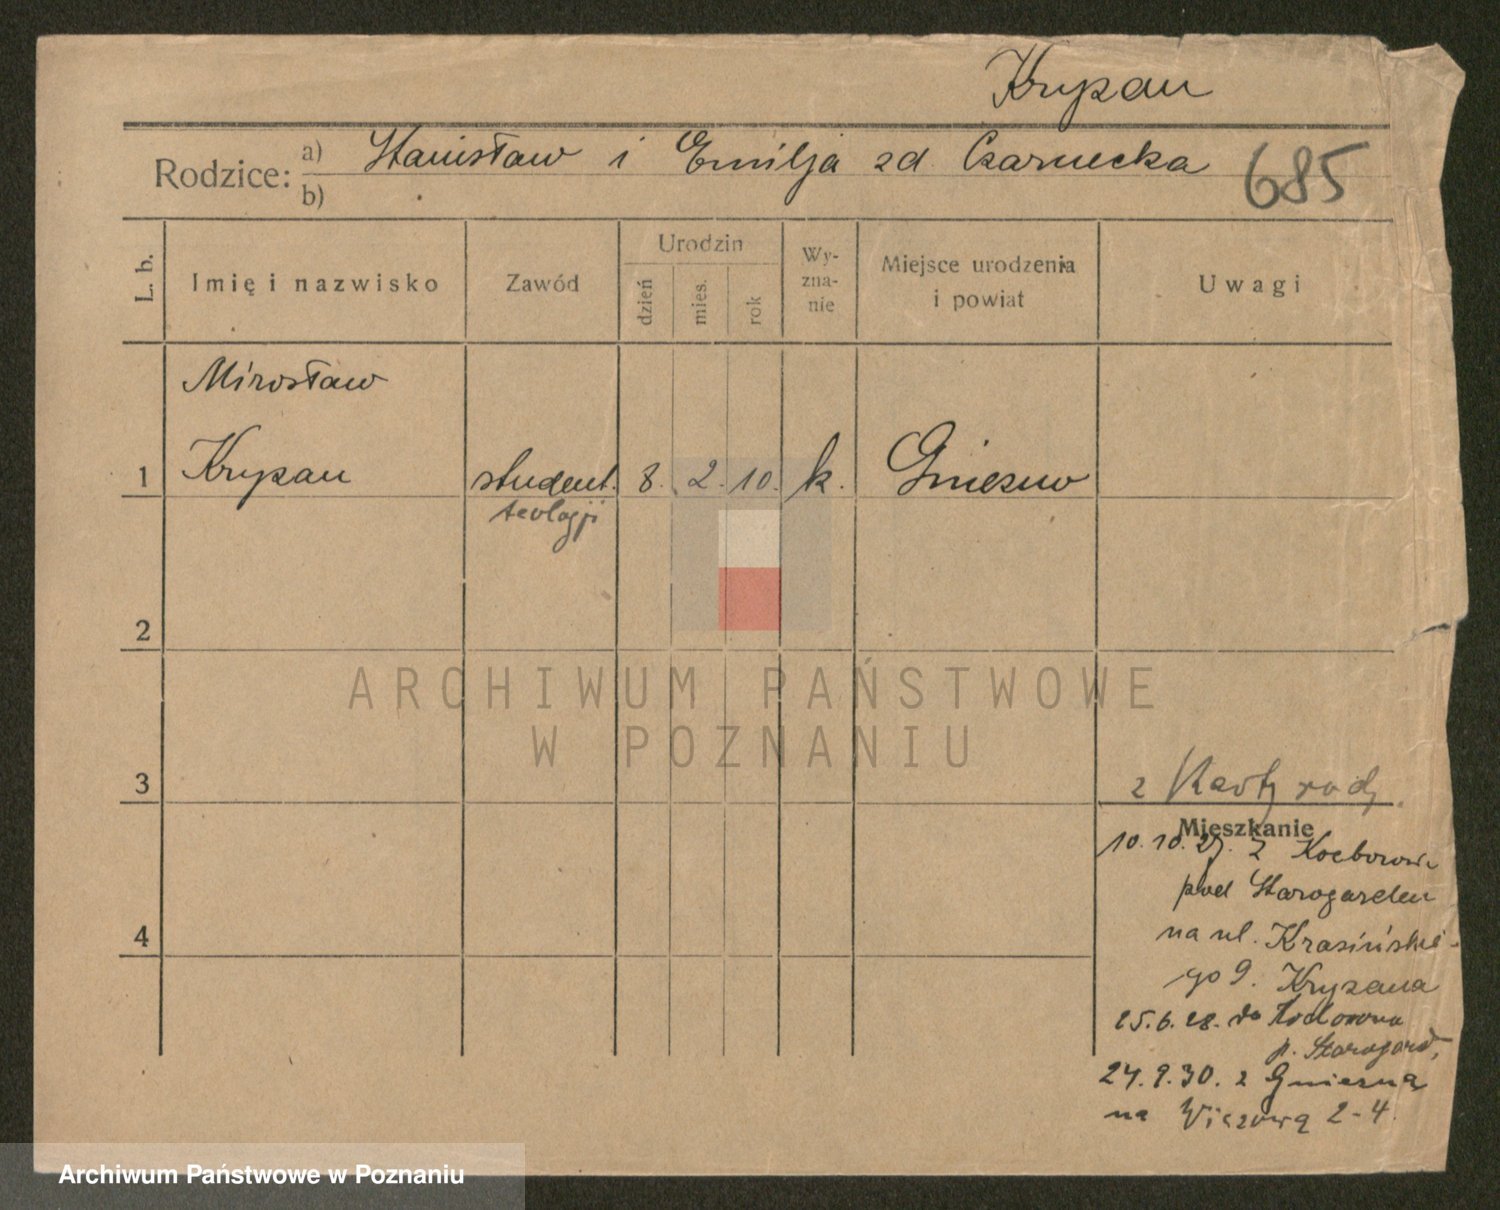 Kryzan
Rodzice: a) Stanisław i Emilja zd. Czarnecka
b)
685
L. b.
Imię i nazwisko
Zawód
Urodzin
dzień
mies.
rok
Wy-
zna-
nie
Miejsce urodzenia
i powiat
Uwagi
Mirosław
1 Kryzan student. 8. 2. 10. k. Gniezno
teologji
2
ARCHIWUM PAŃSTWOWE
W POZNANIU
3
z Karty rodz.
Mieszkanie
10.10.27. z Kocborowa
pod Starogardem
na ul. Krasińskie-
go 9. Kryzana
4
25.6.28. do
p. Starogard,
24.9.30. z Gniezna
na 2-4.
Archiwum Państwowe w Poznaniu